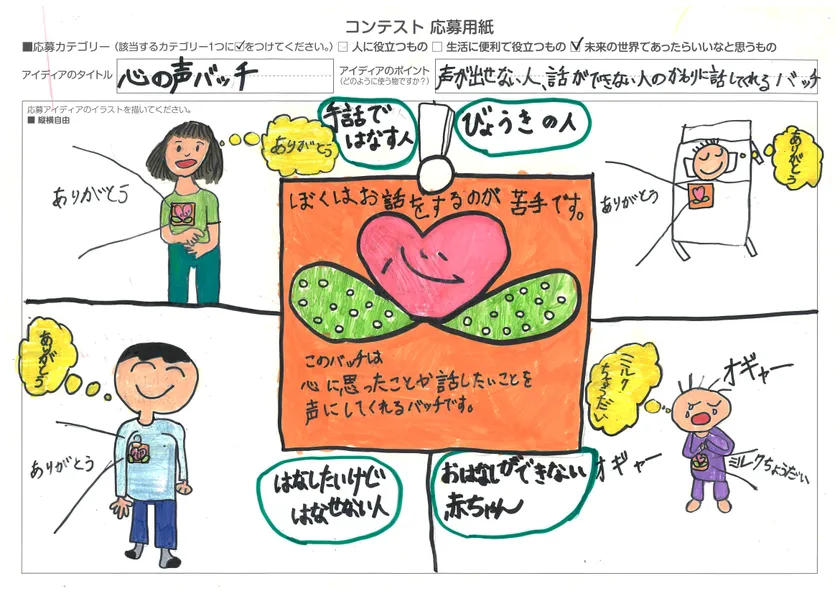 コンテスト 応募用紙
■応募カテゴリー（該当するカテゴリー1つに☑をつけてください。）□ 人に役立つもの □ 生活に便利で役立つもの ☑ 未来の世界であったらいいなと思うもの
アイディアのタイトル 心の声バッチ
アイディアのポイント
（どのように使う物ですか？）
声が出せない人、話ができない人のかわりに話してくれるバッチ
応募アイディアのイラストを描いてください。
■ 縦横自由
手話で
はなす人
ありがとう
ありがとう
びょうきの人
ありがとう
ありがとう
ぼくは、お話をするのが苦手です。
このバッチは
心に思ったことや話したいことを
声にしてくれるバッチです。
ありがとう
ありがとう
はなしたいけど
はなせない人
おはなしができない
赤ちゃん
ミルク
ちょうだい
オギャー
オギャー
ミルクちょうだい